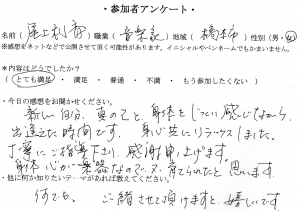 ・参加者アンケート・
職業（音楽家）地域（橿原市）性別（男・女）
※感想をネットなどで公開させて頂く可能性があります。イニシャルやペンネームでもかまいません。
*内容はどうでしたか？
（とても満足 ・ 満足 ・ 普通 ・ 不満 ・ もう参加したくない）
・今日の感想をお聞かせください。
新しい自分、真のこと、身体をじっくり感じながら、
出逢えた時間です。身心共にリラックスしました。
丁寧にご指導下さり、感謝申し上げます。
身体、心が楽器なので又、育てられたと思います。
・他に何か知りたいテーマがあれば教えてください。
何でも。 ご縁させて頂けますと、嬉しいです。